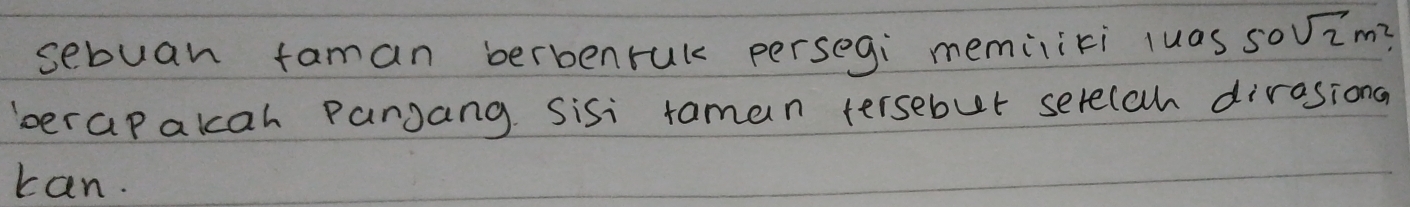 sebuah taman berbentuk persegi memiliki luas 50√2 m².
berapakah Panjang sisi taman tersebut setelah dirasiona
kan.